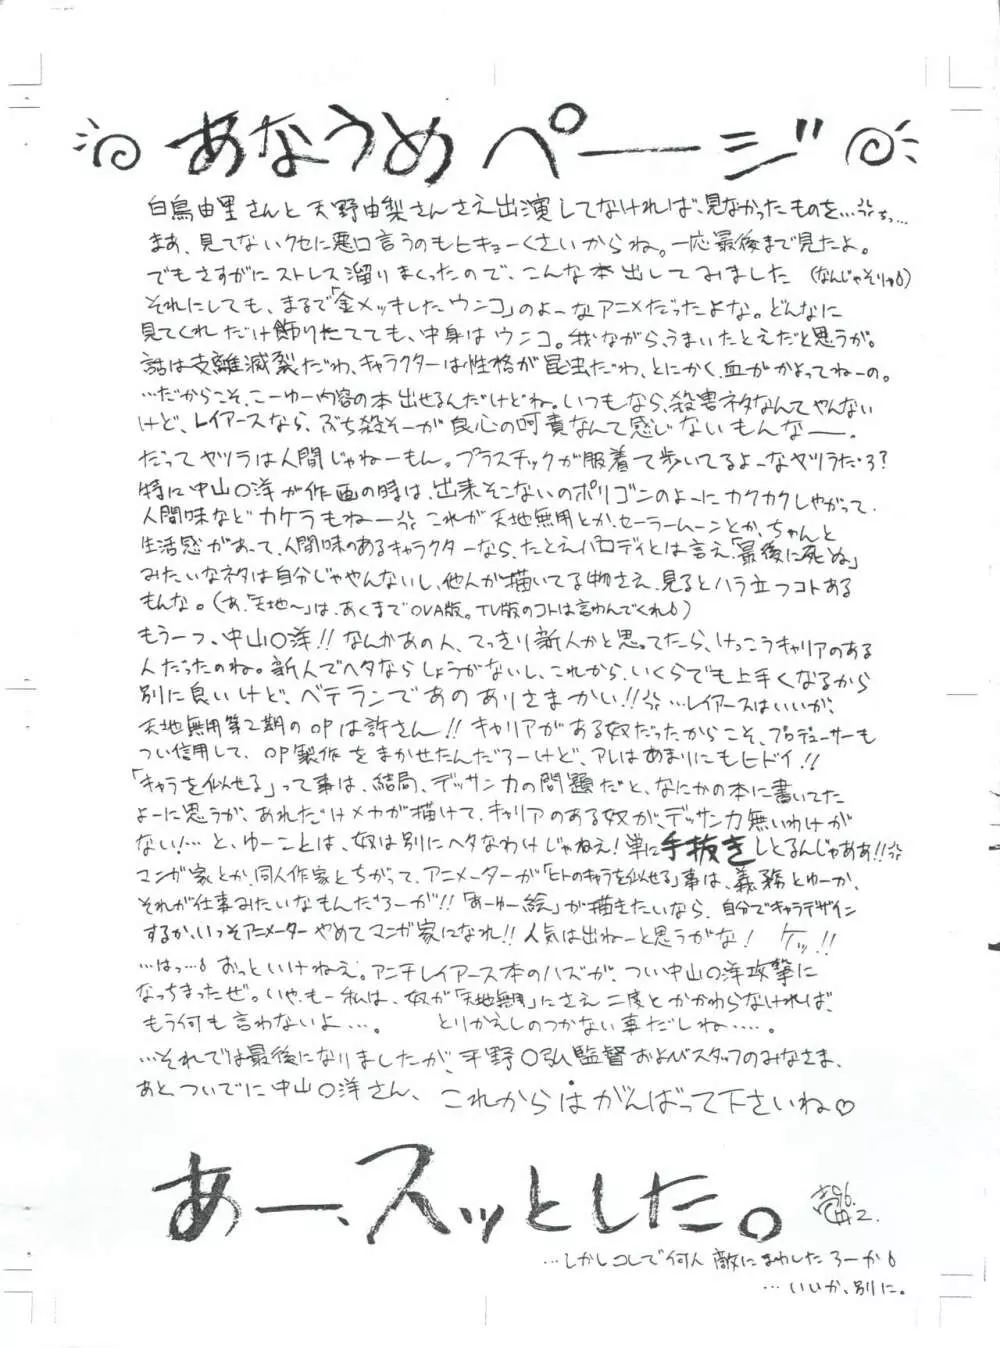 あなうめページ
白鳥由里さんと天野由梨さんさえ出演してなければ、見なかったものを…ちっ…
まあ、見てないクセに悪口言うのもヒキョーくさいからね。一応最後まで見たよ。
でもさすがにストレス溜りまくったので、こんな本出してみました(なんじゃそりゃ)
それにしても、まるで「金メッキしたウンコ」のよーなアニメだったよな。どんなに
見てくれだけ飾りたてても、中身はウンコ。我ながらうまいたとえだと思うが。
話は支離滅裂だわ、キャラクターは性格が昆虫だわ、とにかく血がかよってねーの。
…だからこそ、こーゆー内容の本出せるんだけどね。いつもなら、殺害ネタなんてやんない
けど、レイアースなら、ぶち殺そーが良心の呵責なんて感じないもんなー。
だってヤツラは人間じゃねーもん。プラスチックが服着て歩いてるよーなヤツラだろ?
特に中山〇洋が作画の時は、出来そこないのポリゴンのよーにカクカクしやがって、
人間味などカケラもねー これが天地無用とか、セーラームーンとか、ちゃんと
生活感があって、人間味のあるキャラクターなら、たとえパロディとは言え、「最後に死ぬ」
みたいなネタは自分じゃやんないし、他人が描いてる物さえ、見るとハラ立つコトある
もんな。(あ、「天地〜」は、あくまでOVA版。TV版のコトは言わんでくれ)
もう一つ、中山〇洋!!なんかあの人、てっきり新人かと思ってたら、けっこうキャリアのある
人だったのね。新人でヘタならしょうがないし、これから、いくらでも上手くなるから
別に良いけど、ベテランであのありさまかい!!…レイアースはいいが、
天地無用第2期のOPは許さん!!キャリアがある奴だったからこそ、プロデューサーも
つい信用して、OP製作をまかせたんだろーけど、アレはあまりにもヒドイ!!
「キャラを似せる」って事は、結局、デッサン力の問題だと、なにかの本に書いてた
よーに思うが、あれだけメカが描けて、キャリアのある奴が、デッサン力無いわけが
ない!…と、ゆーことは、奴は別にヘタなわけじゃねえ!単に手抜きしとるんじゃああ!!
マンガ家とか、同人作家とちがって、アニメーターが「ヒトのキャラを似せる」事は、義務とゆーか、
それが仕事みたいなもんだろーが!!「あーゆー絵」が描きたいなら、自分でキャラデザイン
するか、いっそアニメーターやめてマンガ家になれ!!人気は出ねーと思うがな! ケッ!!
…はっ…おっといけねえ。アンチレイアース本のハズが、つい中山〇洋攻撃に
なっちまったぜ。いや、もー私は、奴が「天地無用」にさえ二度とかかわらなければ、
もう何も言わないよ…。 とりかえしのつかない事だしね…。
…それでは最後になりましたが、平野〇弘監督およびスタッフのみなさま、
あと、ついでに中山〇洋さん、これからはがんばって下さいね♡
あー、スッとした。
'96. 2.
…しかしコレで何人敵にまわしたろーか
…いいか、別に。